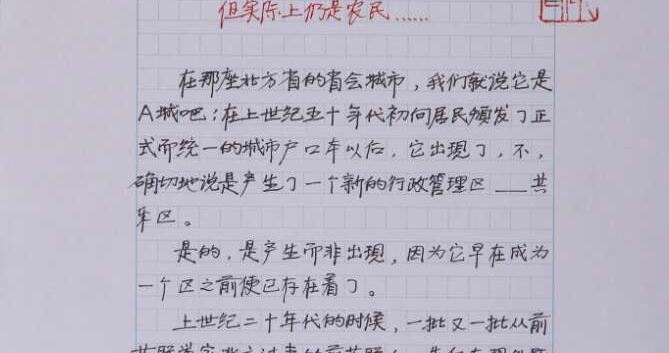 但实际上仍是农民……
在那座北方省的省会城市，我们就说它是
A城吧；在上世纪五十年代初向居民颁发了正
式而统一的城市户口本以后，它出现了，不，
确切地说是产生了一个新的行政管理区——共
乐区。
是的，是产生而非出现，因为它早在成为
一个区之前便已存在着了。
上世纪二十年代的时候，一批又一批从前